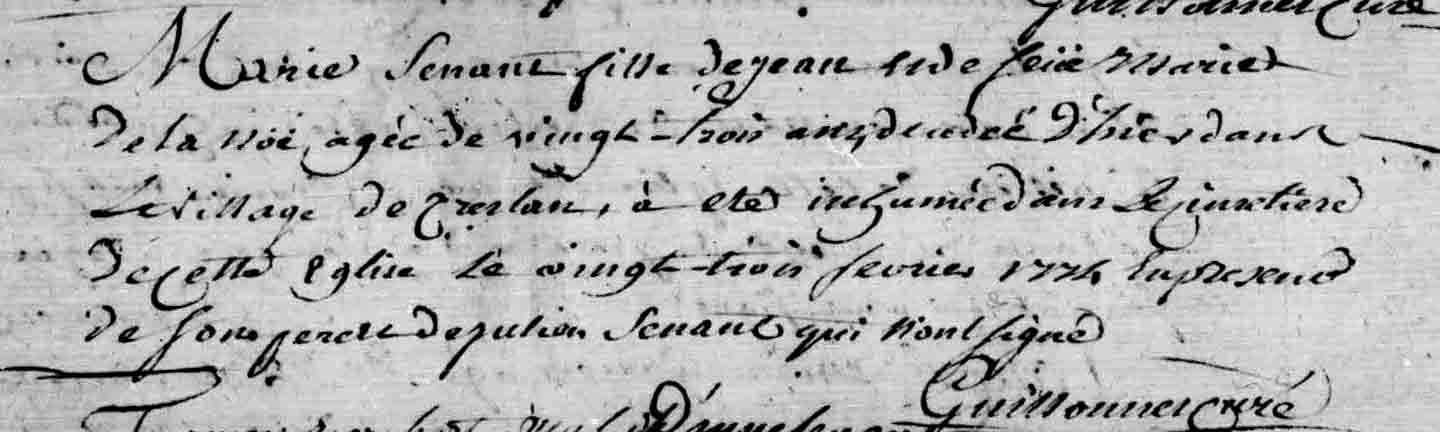 Guillonnet Curé
Marie Senant fille de jean et de feüe Marie
De la Nöe, agée de vingt-trois ans, decedeé D'hier dans
Le village de Treslan, à eté inhumée dans Le cimetiere
De cette Eglise Le vingt-trois fevrier 1774 En presence
de son pere et de julien Senant qui n'ont signé
Guillonnet curé